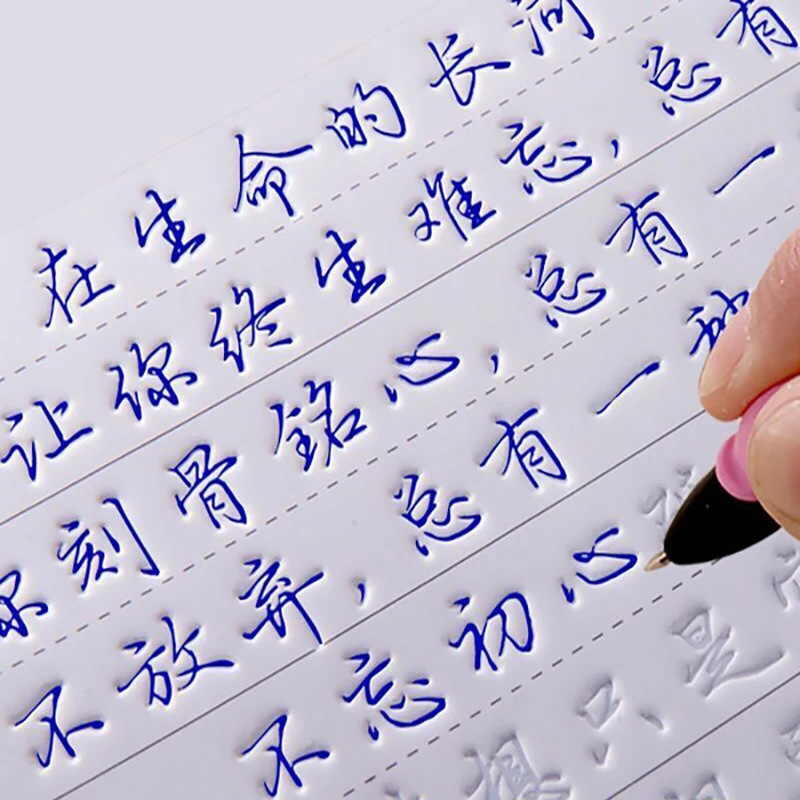 在生命的长河
让你终生难忘，总有
你刻骨銘心，总有一
不放弃，总有一
不忘初心
想只是